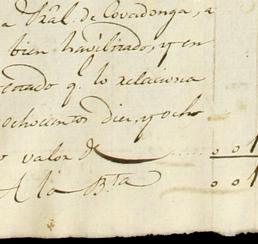 a Rl. de Covadonga, a
bien havilitado, y en
ecado q. lo relaciona
ochocientos diez, y ocho
valor de 001
A la Bta 001